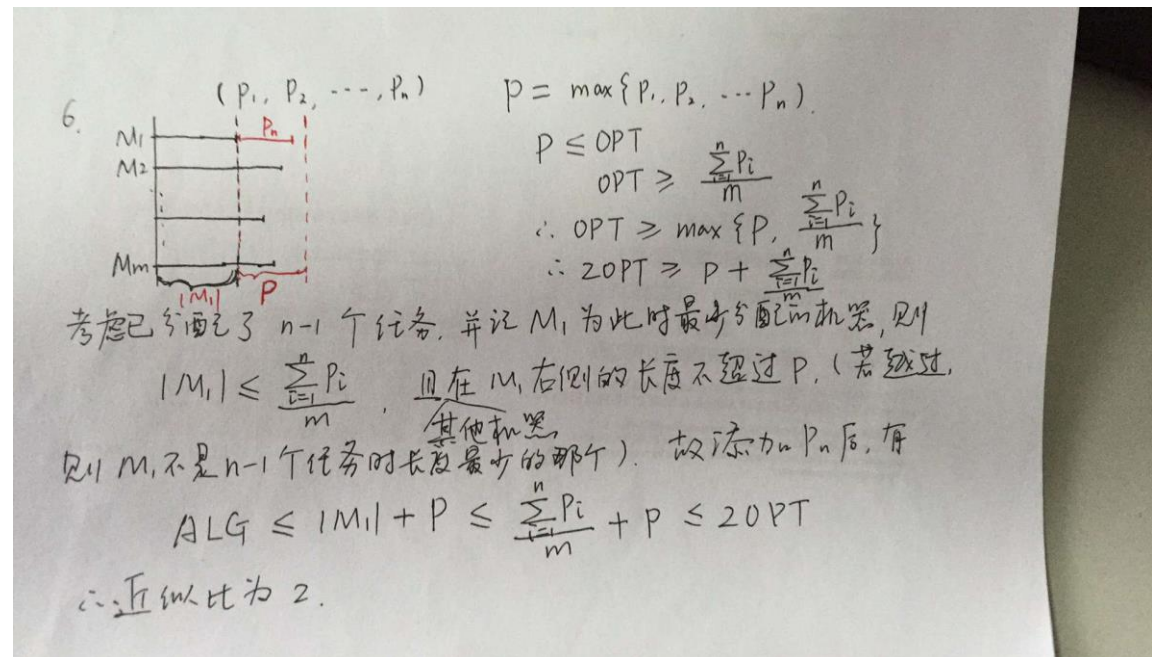 6. (P₁, P₂, ---, Pₙ) P = max{P₁, P₂, ... Pₙ).
M₁ Pₙ
M₂
P ≤ OPT
OPT ≥ \frac{\sum_{i=1}^{n} P_i}{m}
∴ OPT ≥ max {P, \frac{\sum_{i=1}^{n} P_i}{m}}
Mm
∴ 2OPT ≥ P + \frac{\sum_{i=1}^{n} P_i}{m}
|M₁| P
考虑已分配了 n-1 个任务, 并记 M₁ 为此时最少分配的机器, 则
|M₁| ≤ \frac{\sum_{i=1}^{n} P_i}{m}, 且在 M₁ 右侧的长度不超过 P, (若越过,
其他机器
则 M₁ 不是 n-1 个任务时长度最少的那个). 故添加 Pₙ 后, 有
ALG ≤ |M₁| + P ≤ \frac{\sum_{i=1}^{n} P_i}{m} + P ≤ 2OPT
∴ 近似比为 2.